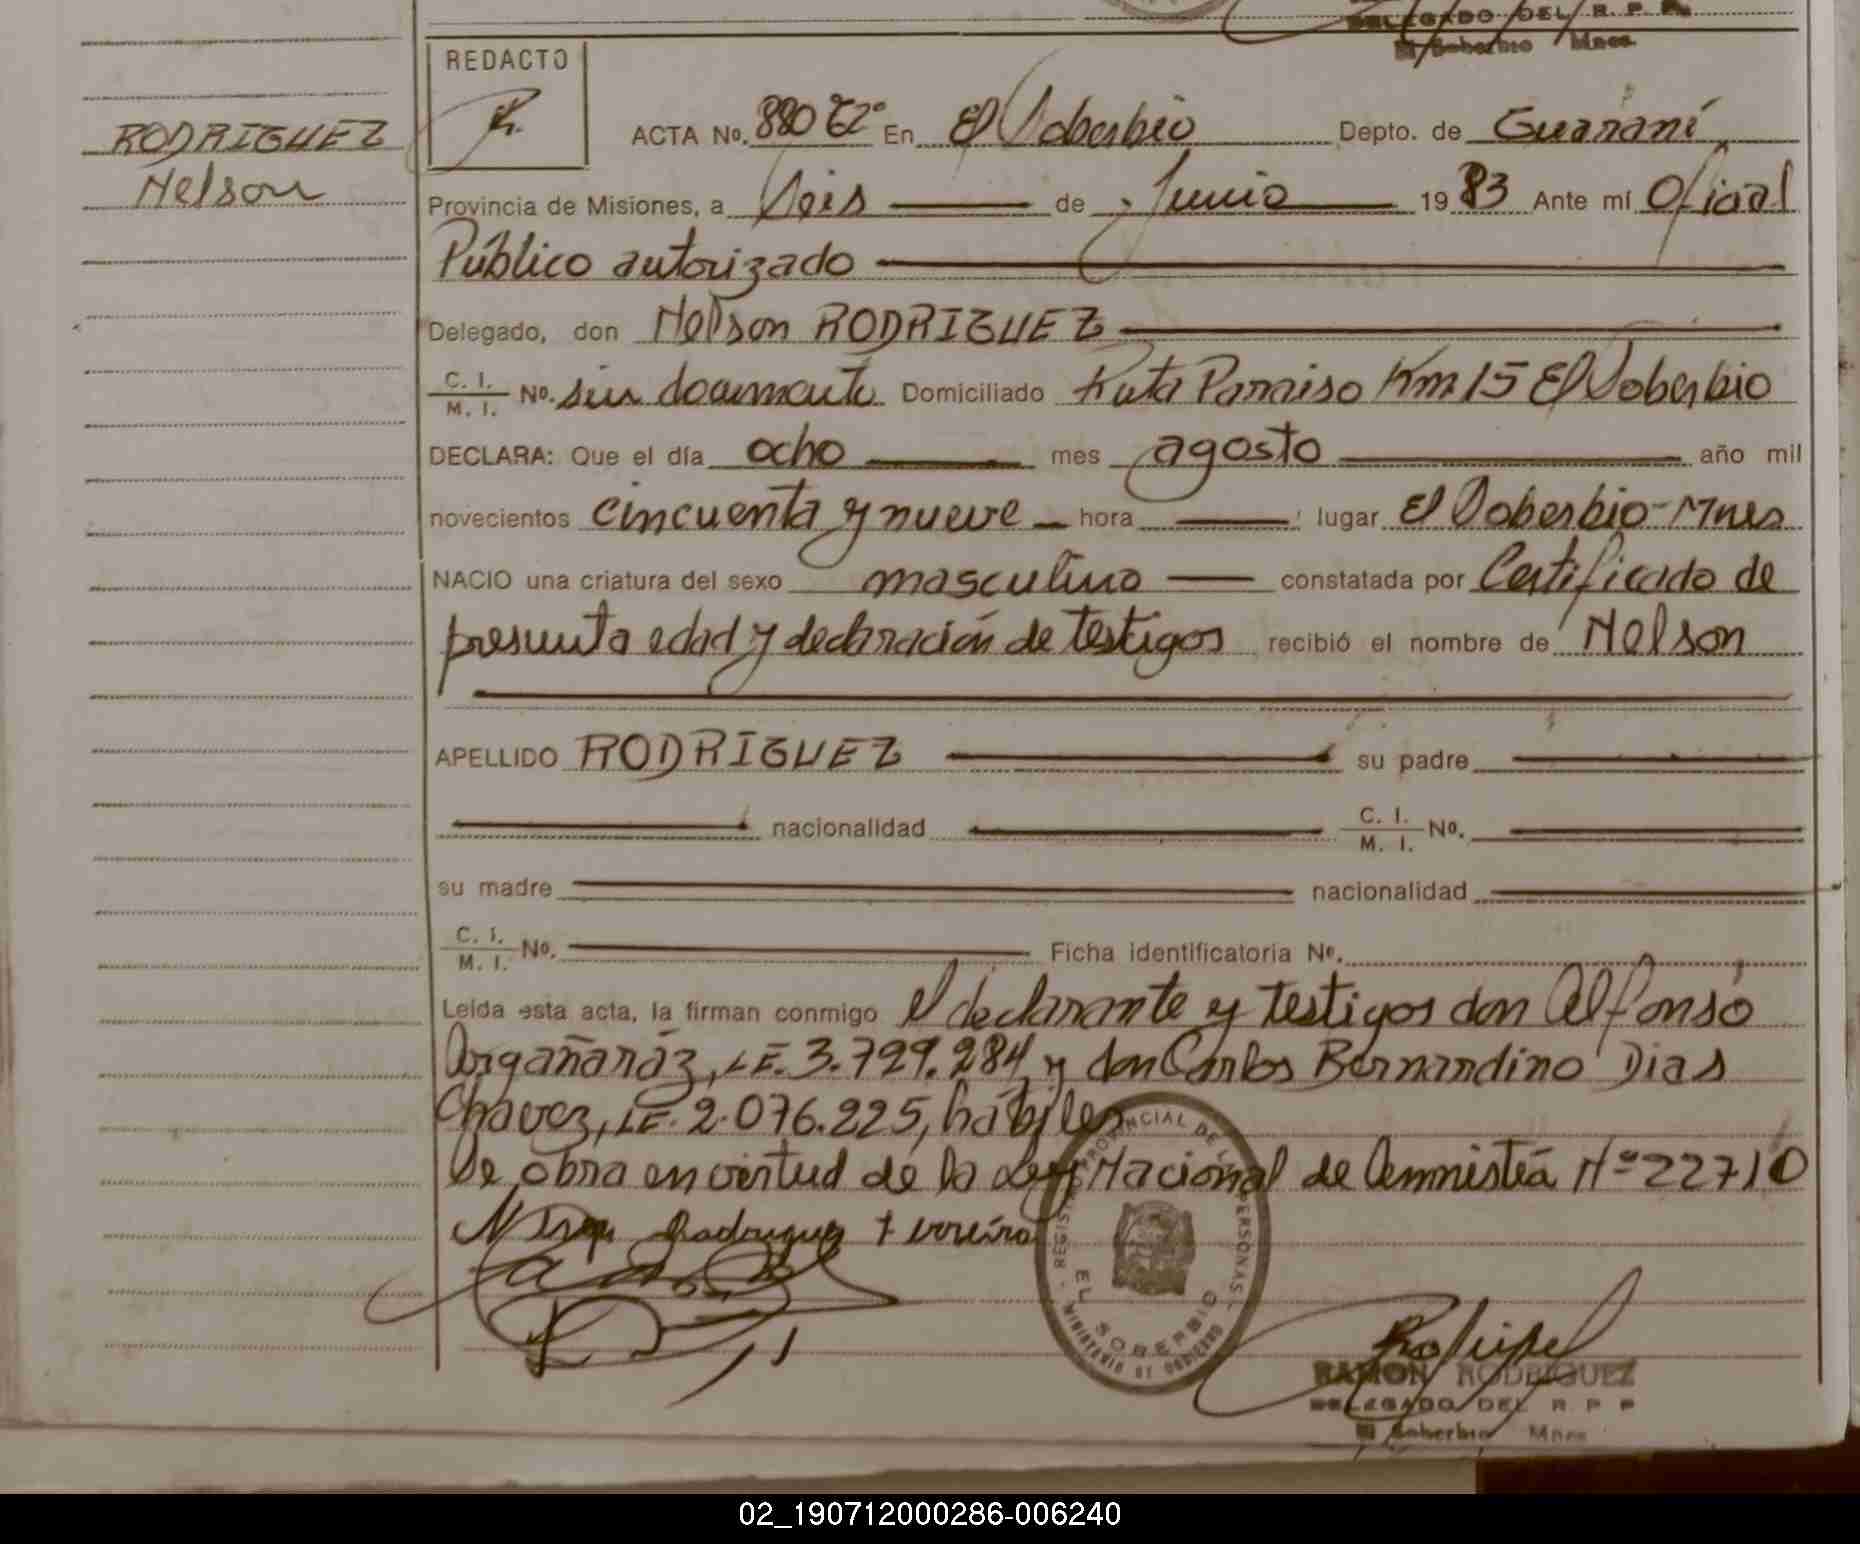 DELEGADO DEL R. P. P.
El Soberbio Mnes.
REDACTO
RODRIGUEZ
Nelson
ACTA No. 880 Tº En El Soberbio Depto. de Guaraní
Provincia de Misiones, a Seis de Junio 1983 Ante mí Oficial
Público autorizado
Delegado, don Nelson RODRIGUEZ
C. I.
M. I. No. sin documento Domiciliado Ruta Paraiso Km 15 El Soberbio
DECLARA: Que el día ocho mes agosto año mil
novecientos cincuenta y nueve hora lugar El Soberbio-Mnes
NACIO una criatura del sexo masculino constatada por Certificado de
presunta edad y declaración de testigos recibió el nombre de Nelson
APELLIDO RODRIGUEZ su padre
nacionalidad C. I.
M. I. No.
su madre nacionalidad
C. I.
M. I. No. Ficha identificatoria No.
Leída esta acta, la firman conmigo el declarante y testigos don Alfonso
Argañaráz, LE. 3.729.284 y don Carlos Bernardino Dias
Chavez, LE. 2.076.225, hábiles
Se obra en virtud de la Ley Nacional de Amnistía Nº 22710
Rodriguez Ferreira
REGISTRO PROVINCIAL DE LAS PERSONAS
EL SOBERBIO
MINISTERIO DE GOBIERNO
RAMON RODRIGUEZ
DELEGADO DEL R P P
El Soberbio Mnes
02_190712000286-006240